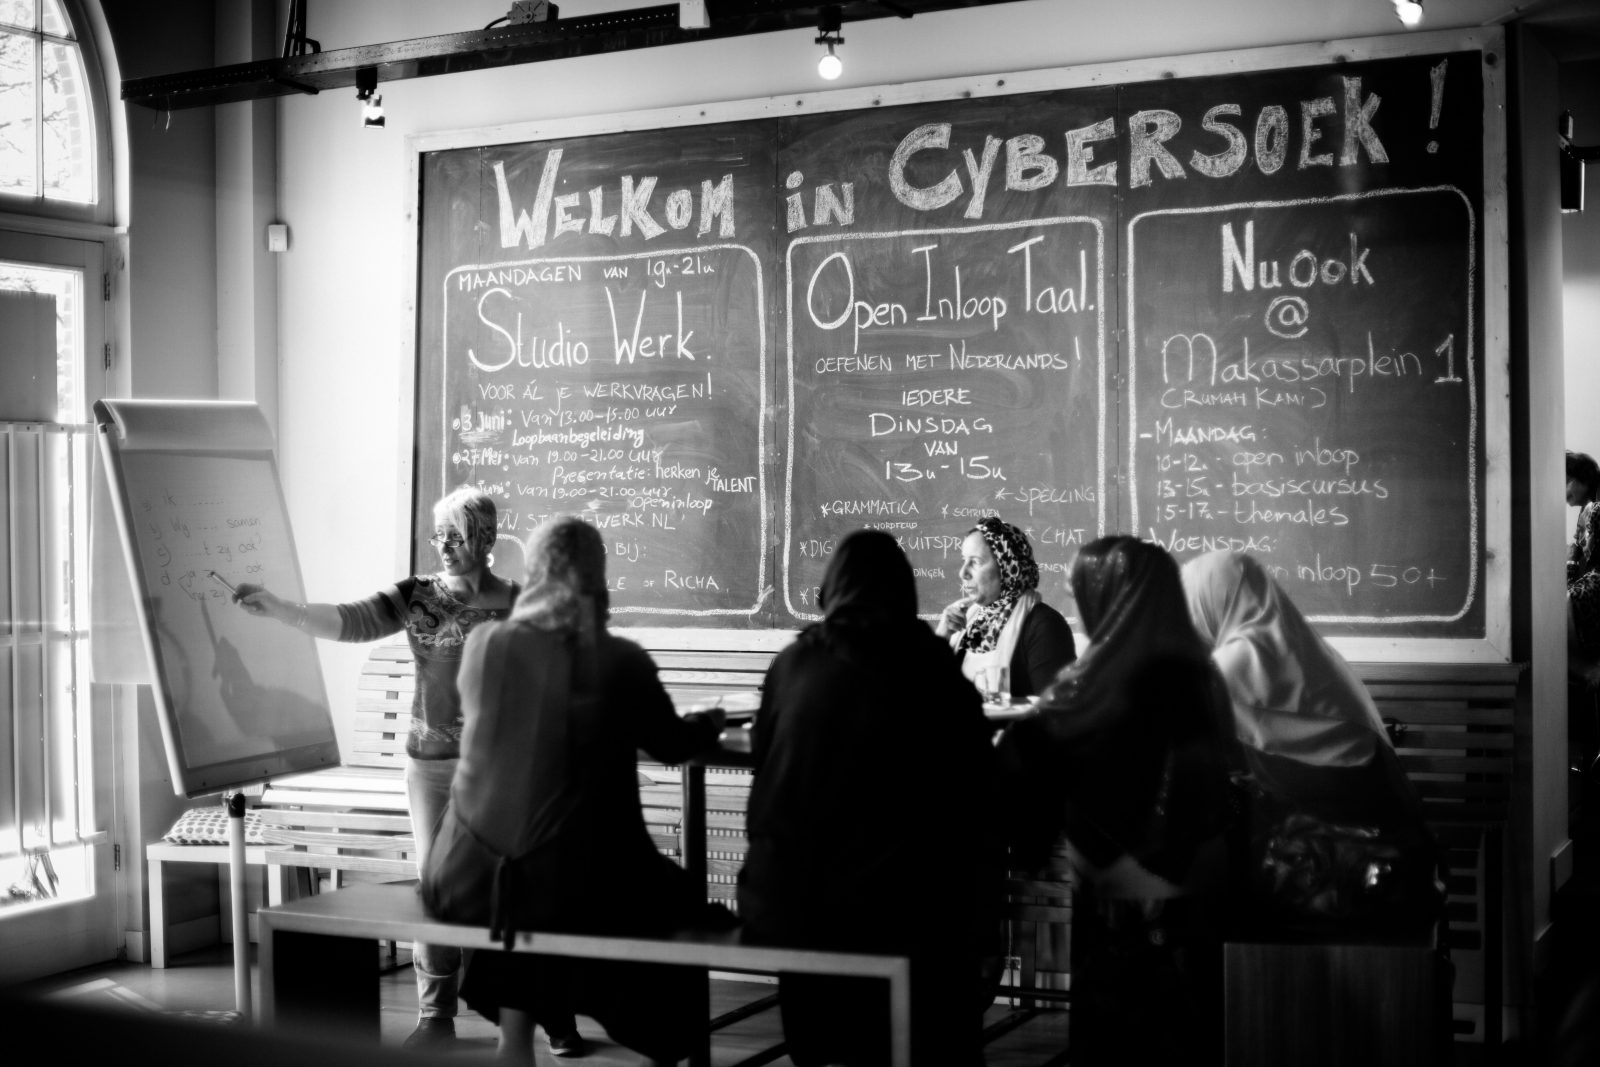 WELKOM in CYBERSOEK!
MAANDAGEN VAN 19u-21u
Studio Werk.
VOOR ÁL JE WERKVRAGEN!
3 Juni: Van 13.00-15.00 uur
Loopbaanbegeleiding
27 Mei: Van 19.00-21.00 uur
Presentatie: herken je TALENT
Juni: Van 19.00-21.00 uur
Open inloop
WERK.NL
BIJ:
OF RICHA
Open Inloop Taal.
OEFENEN MET NEDERLANDS!
IEDERE
DINSDAG
VAN
13u-15u
*GRAMMATICA
*-SPELLING
* SCHRIJVEN
* CHAT
Nu Ook
@
Makassarplein 1
(RUMAH KAMI)
-MAANDAG:
10-12u - open inloop
13-15u - basiscursus
15-17u - themales
-WOENSDAG:
inloop 50+
ik ......
Wij .... samen
zij ook?